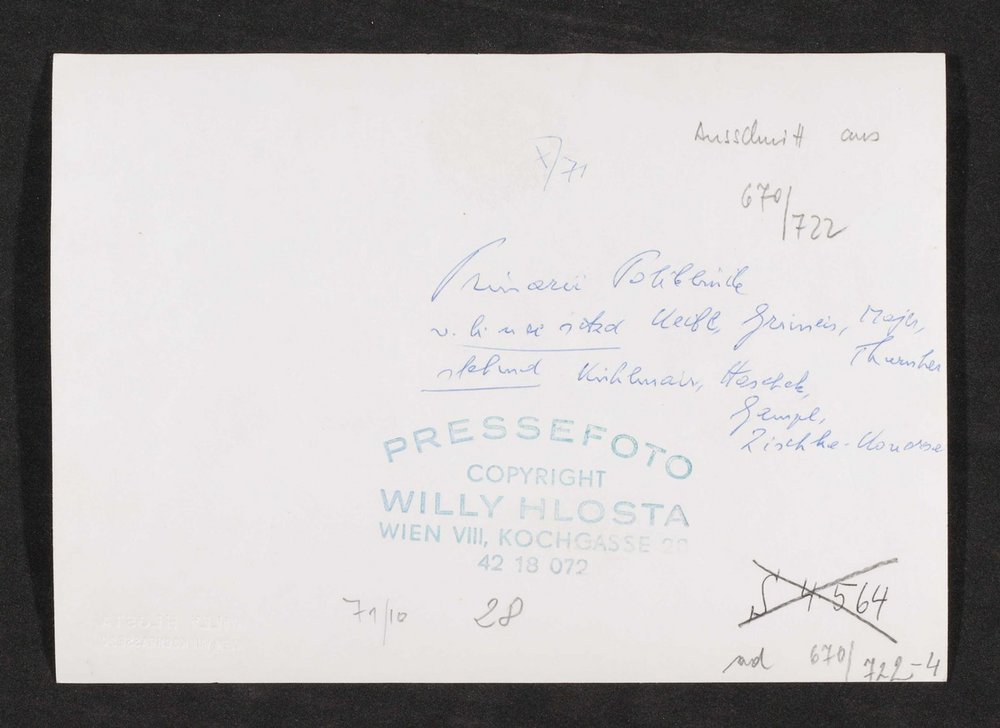 Ausschnitt aus
X/71
670/722
Primarii Poliklinik
v. li n re sitzd Keibl, Grüneis, Majer,
Thurnher
stehend Kühlmair, Haschek,
Gampl,
Zischka-Konorsa
PRESSEFOTO
COPYRIGHT
WILLY HLOSTA
WIEN VIII, KOCHGASSE
42 18 072
71/10 28
S 4.564
ad 670/722-4
WILLY HLOSTA